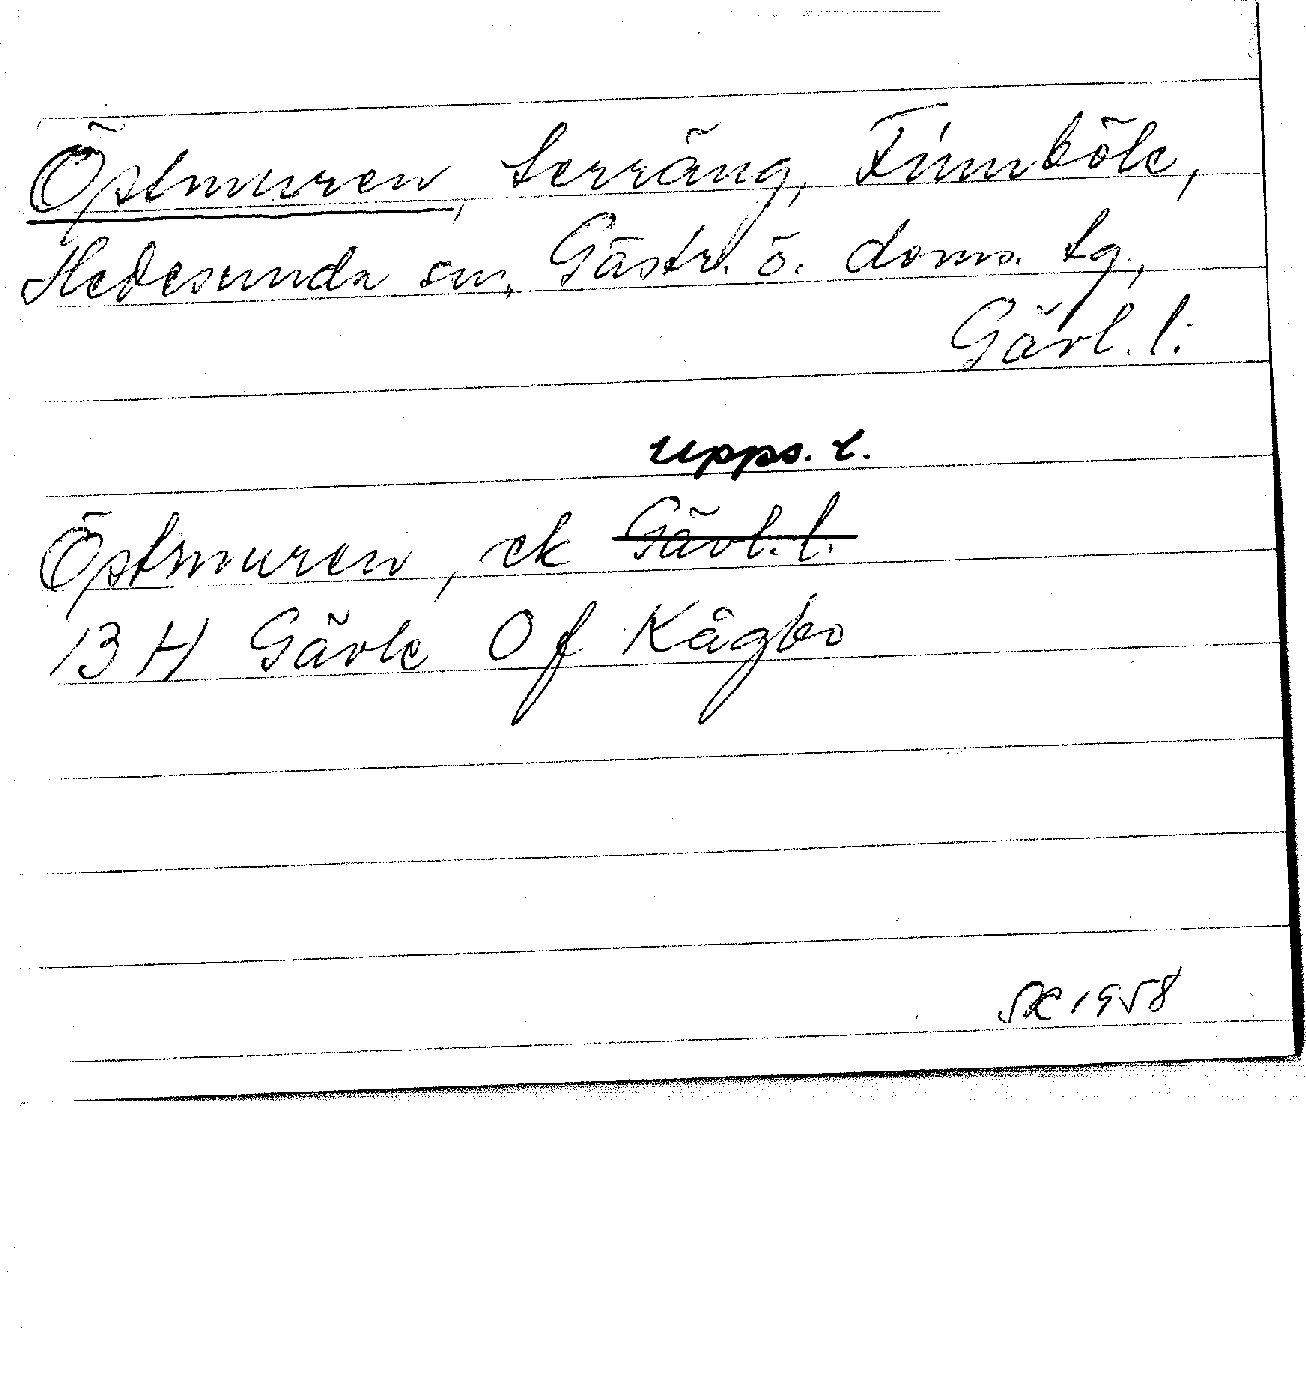 Östmuren, terräng, Finnböle,
Hedesunda sn, Gästr. ö. doms. tg.,
Gävl. l.
Upps. l.
Östmuren, ek Gävl. l.
13 H Gävle 0 f Kågbo
SK 1958